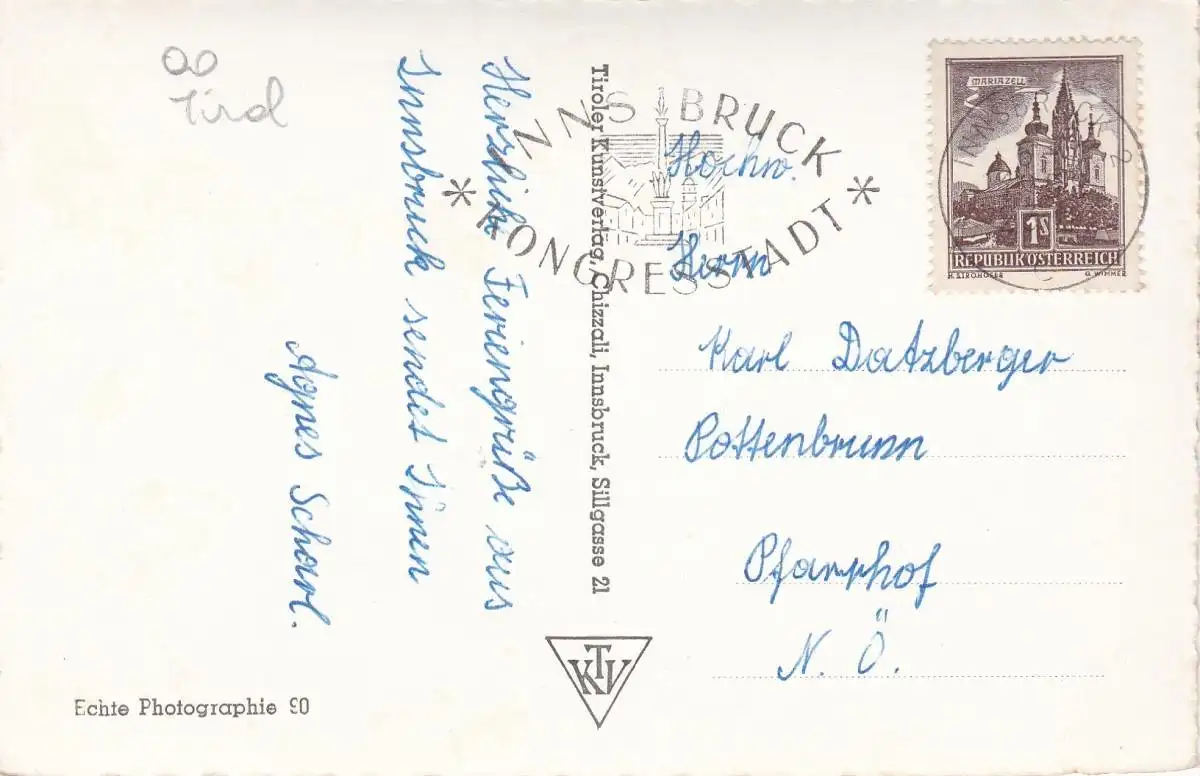 OO
Tirol
Herzliche Feriengrüße aus
Innsbruck sendet Ihnen
Agnes Scharl.
Echte Photographie 90
Tiroler Kunstverlag, Chizzali, Innsbruck, Sillgasse 21
KTV
INNSBRUCK
* KONGRESSSTADT *
MARIAZELL
1S
REPUBLIK ÖSTERREICH
G. WIMMER
Hochw.
Herrn
Karl Datzberger
Pottenbrunn
Pfarrhof
N. Ö.